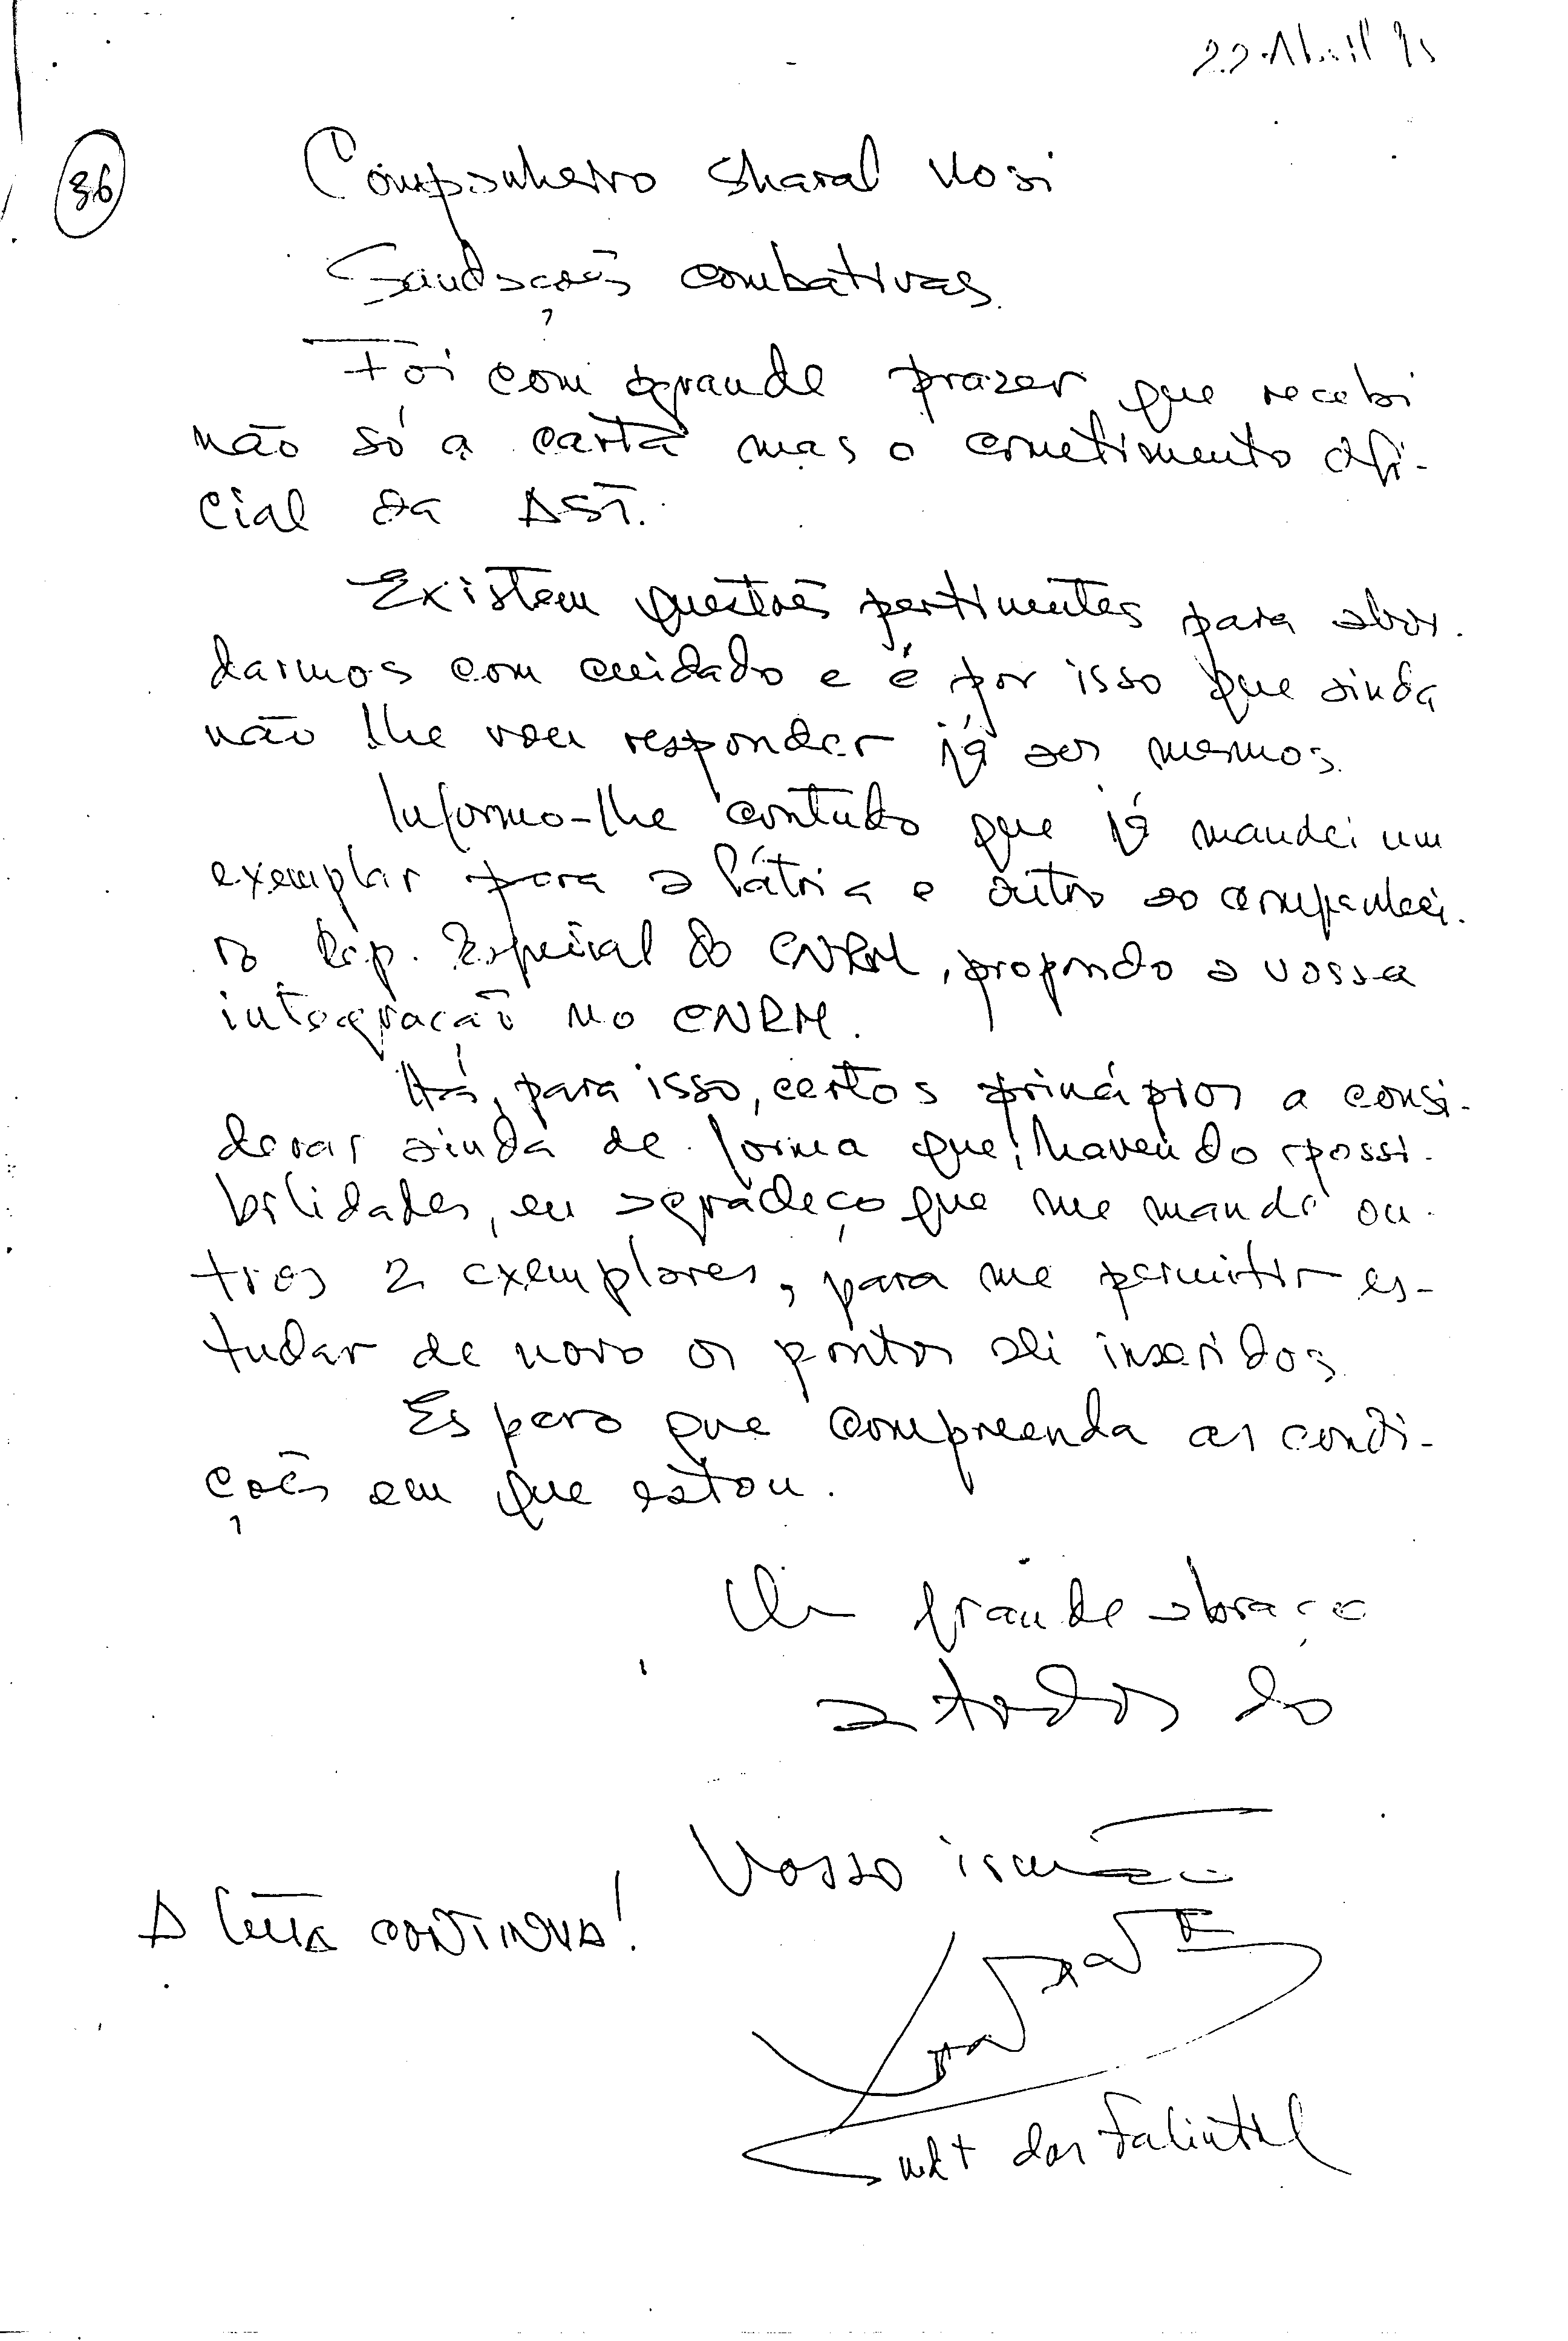 22 Abril 95
36
Companheiro Sharal Kosi
Saudações combativas.
Foi com grande prazer que recebi
não só a carta mas o cometimento ofi-
cial da AST.
Existem questões pertinentes para abor-
darmos com cuidado e é por isso que ainda
não lhe vou responder já aos mesmos.
Informo-lhe contudo que já mandei um
exemplar para a Pátria e outro ao companhei-
ro Rep. Especial do CNRM, propondo a vossa
integração no CNRM.
Há, para isso, certos princípios a consi-
derar ainda de forma que, havendo possi-
bilidades, eu agradeço que me mande ou-
tros 2 exemplares, para me permitir es-
tudar de novo os pontos ali inseridos.
Espero que compreenda as condi-
ções em que estou.
Um grande abraço
a todos do
Vosso irmão
A luta CONTINUA!
Cmdt das Falintil